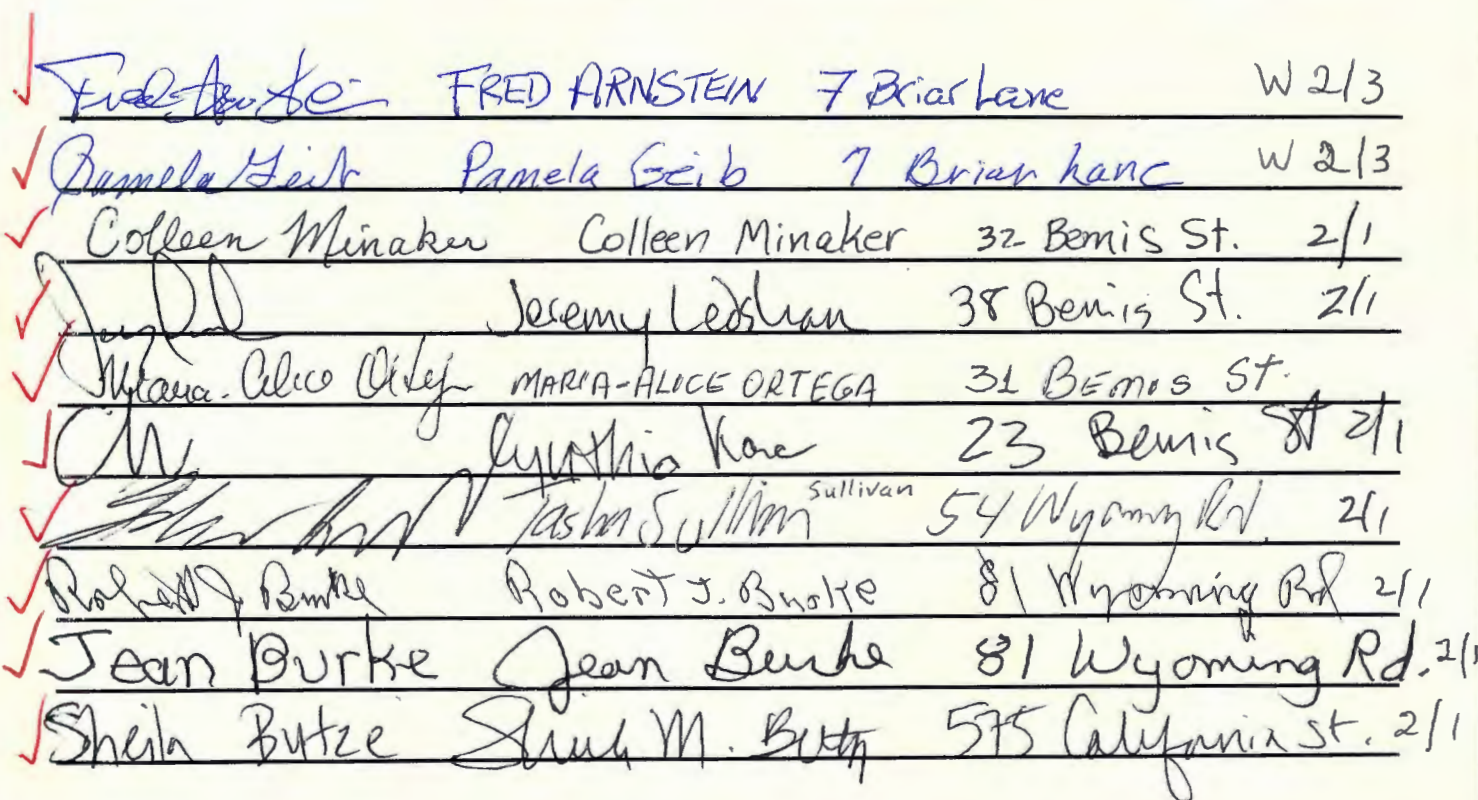 FRED ARNSTEIN 7 Briar Lane W 2/3
Pamela Geib Pamela Geib 7 Briar Lane W 2/3
Colleen Minaker Colleen Minaker 32 Bemis St. 2/1
Jeremy 38 Bemis St. 2/1
Maria-Alice MARIA-ALICE ORTEGA 31 BEMIS ST.
Cynthia 23 Bemis St 2/1
Tasha Sullivan Sullivan 54 Wyoming Rd. 2/1
Robert J. Burke Robert J. Burke 81 Wyoming Rd 2/1
Jean Burke Jean Burke 81 Wyoming Rd. 2/1
Sheila Butze Sheila M. Butze 575 California St. 2/1